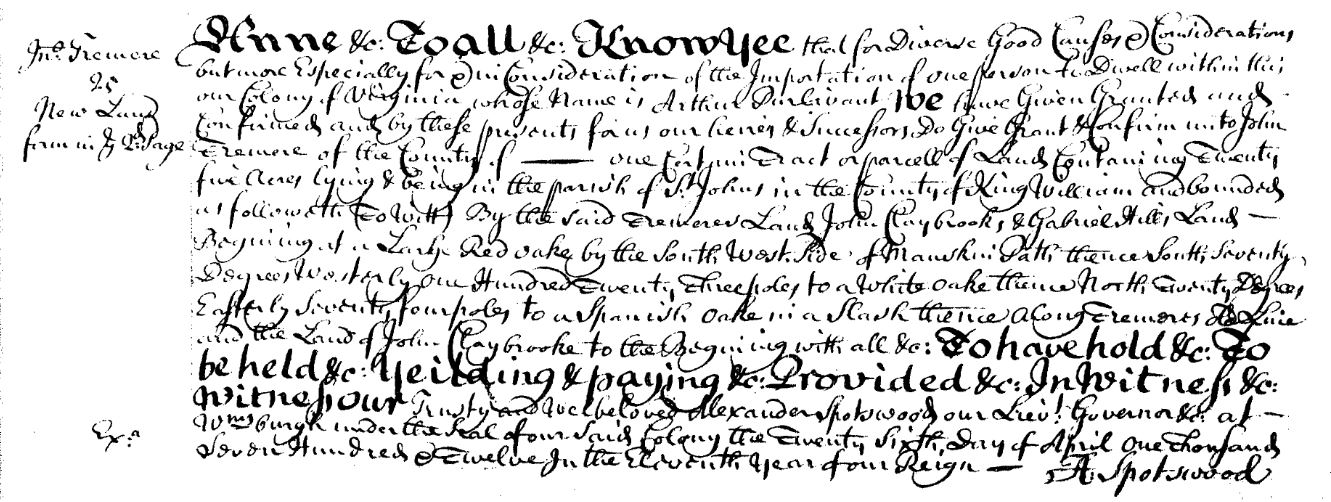 Jno. Tremere
25
New Land
form in ye Passage
Anne &c: To all &c: Know Yee that for Diverse Good Causes & Considerations
but more Especially for & in Consideration of the Importation of one person to Dwell within this
our Colony of Virginia whose Name is Arthur Surlivant We have Given Granted and
Confirmed and by these presents for us our heires & Successors Do Give Grant & Confirm unto John
Tremere of the County of —— one Certain Tract or parcell of Land Containing Twenty
five Acres lying & being in the parish of St. Johns in the County of King William and bounded
as followeth (To Witt) By the said Tremeres Land John Claybrooks & Gabriel Hills Land —
Begining at a Large Red oake by the South West Side of Manskin Path thence South Seventy
Degrees Westerly One Hundred Twenty Three poles to a White oake thence North Twenty Degrees
Easterly Seventy four poles to a Spanish oake in a Slash thence along Tremeres Line
and the Land of John Claybrooke to the Begining with all &c: To have hold &c: To
be held &c: Yeilding & paying &c: Provided &c: In Witness &c:
Witness our Trusty and Welbeloved Alexander Spotswood our Lievt. Governor &c: at —
Wmsburgh under the Seal of our Said Colony the Twenty Sixth Day of April One Thousand
Seven Hundred & Twelve In the Eleventh Year of our Reign — A. Spotswood
Exa.